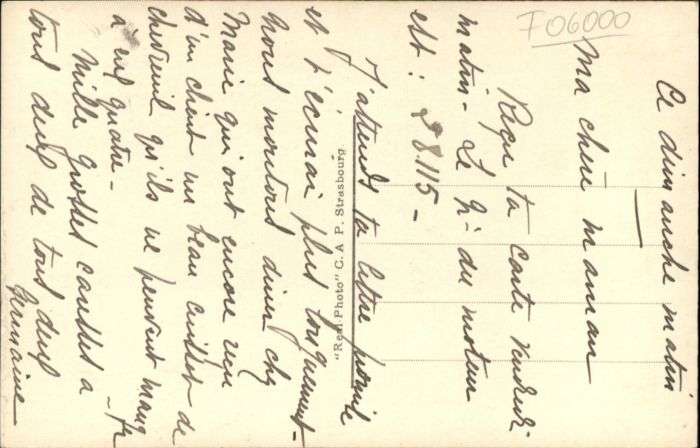 Ce dimanche matin
Ma chère maman
Reçu ta carte vendredi
matin - Le N° du moteur
est : 8.115 -
J'attends ta lettre promise
et t'écrirai plus longuement -
Nous montons diner chez
Marie qui ont encore reçu
d'un client un beau cuissot de
chevreuil qu'ils ne peuvent manger
à eux quatre -
Mille grosses caresses à
tous deux de tous deux
Germaine
"Real Photo" C. A. P. Strasbourg
F06000